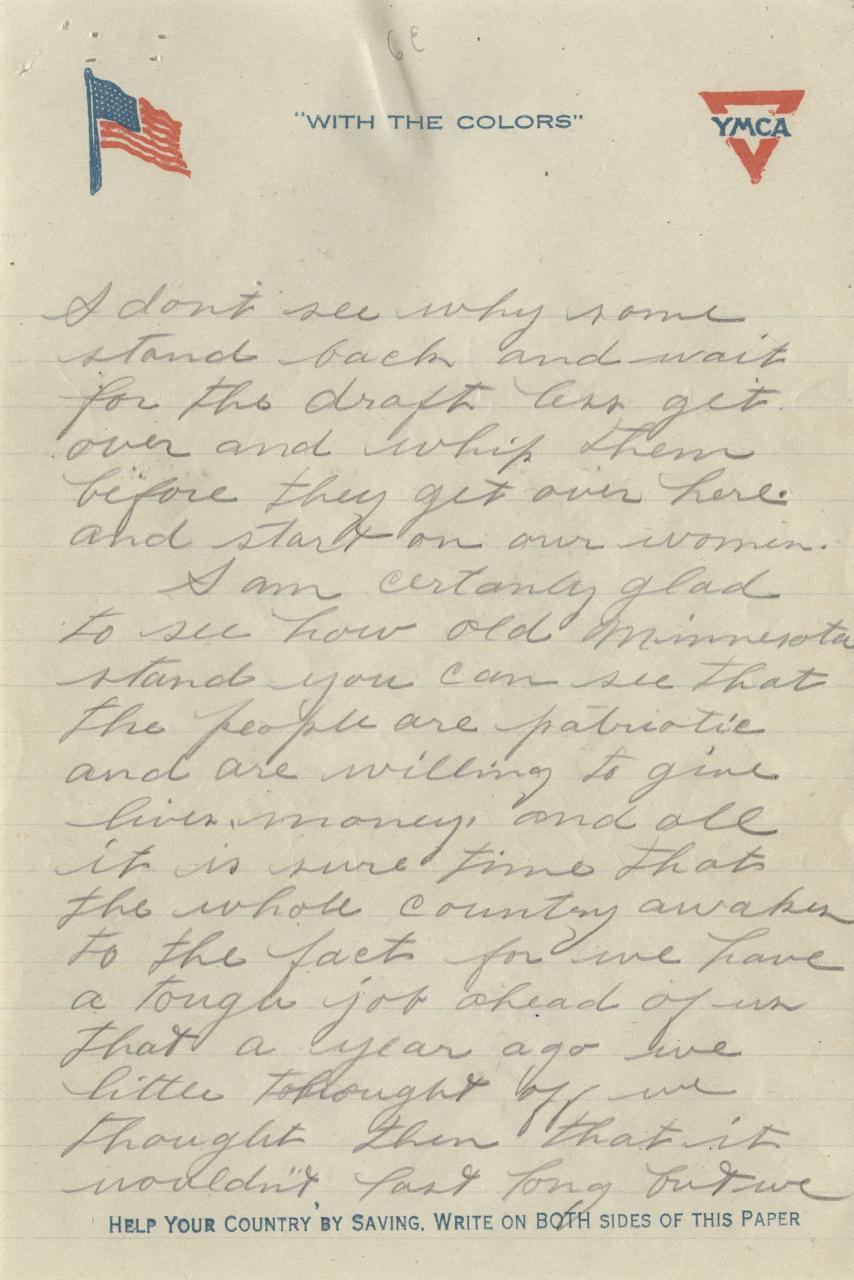 63
"WITH THE COLORS"
YMCA
I dont see why some
stand back and wait
for the draft less get
over and whip them
before they get over here.
and start on our women.
I am certanly glad
to see how old Minnesota
stand you can see that
the people are patriotic
and are willing to give
lives. money, and all
it is sure time that
the whole country awaken
to the fact for we have
a tough job ahead of us
that a year ago we
little thought of we
thought then that it
wouldn't last long but we
HELP YOUR COUNTRY BY SAVING. WRITE ON BOTH SIDES OF THIS PAPER